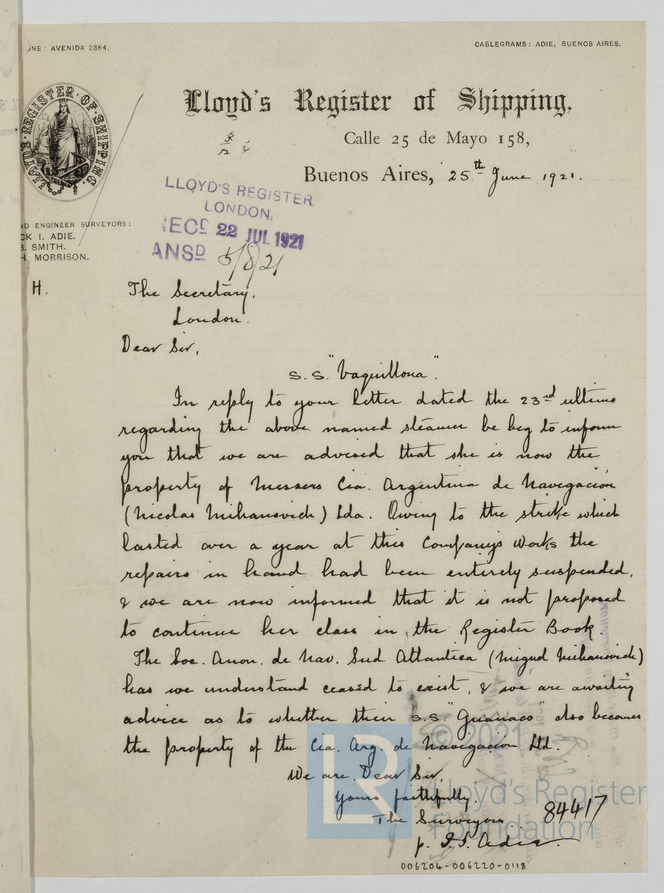 NE: AVENIDA 2364.
CABLEGRAMS: ADIE, BUENOS AIRES.
LLOYD'S REGISTER OF SHIPPING
Lloyd's Register of Shipping,
Calle 25 de Mayo 158,
Buenos Aires, 25th June 1921.
LLOYD'S REGISTER
LONDON,
ECD 22 JUL 1921
ANSD 5/8/21
D ENGINEER SURVEYORS:
CK I. ADIE.
SMITH.
H. MORRISON.
H.
The Secretary,
London.
Dear Sir,
S.S. "Vaquillona".
In reply to your letter dated the 23rd ultimo
regarding the above named steamer be beg to inform
you that we are advised that she is now the
property of Messers Cia. Argentina de Navegacion
(Nicolas Mihanovich) Lda. Owing to the strike which
lasted over a year at this Company's Works the
repairs in hand had been entirely suspended,
& we are now informed that it is not proposed
to continue her class in the Register Book.
The Soc. Anon. de Nav. Sud Atlantica (Miguel Mihanovich)
has we understand ceased to exist, & we are awaiting
advice as to whether their S.S. "Guanaco" also becomes
the property of the Cia. Arg. de Navegacion Ltd.
We are, Dear Sir,
Yours faithfully
The Surveyors
84417
p. Adie
© 2021
LR
Lloyd's Register
Foundation
006204-006220-0118